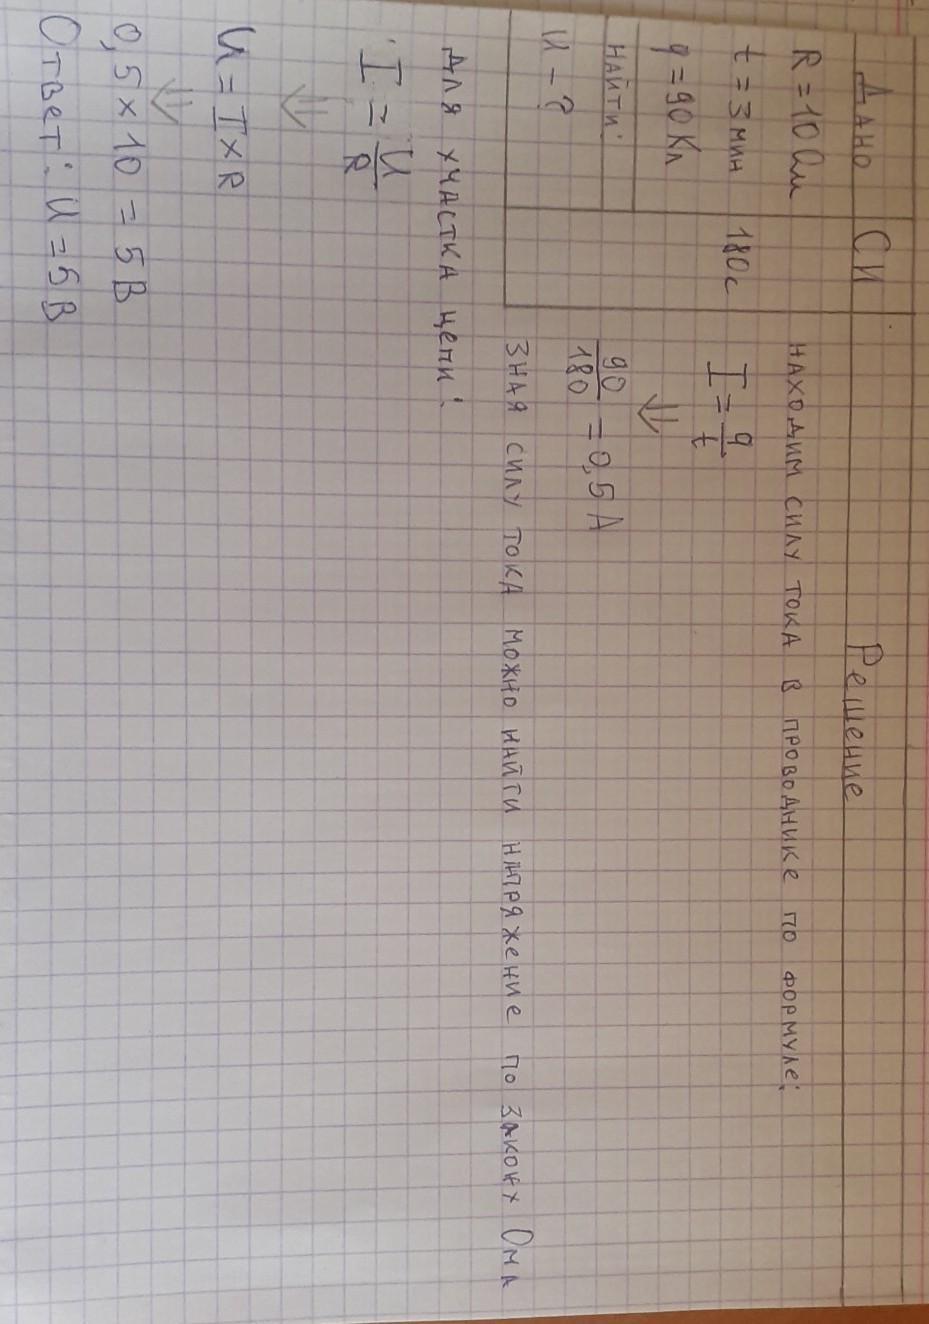 Дано СИ Решение
R = 10 Ом
t = 3 мин 180с
q = 90 Кл
найти:
U - ?
находим силу тока в проводнике по формуле:
I = q/t
⇓
90/180 = 0,5 А
Зная силу тока можно найти напряжение по закону Ома
для участка цепи:
I = U/R
⇓
U = I × R
⇓
0,5 × 10 = 5 В
Ответ: U = 5 В